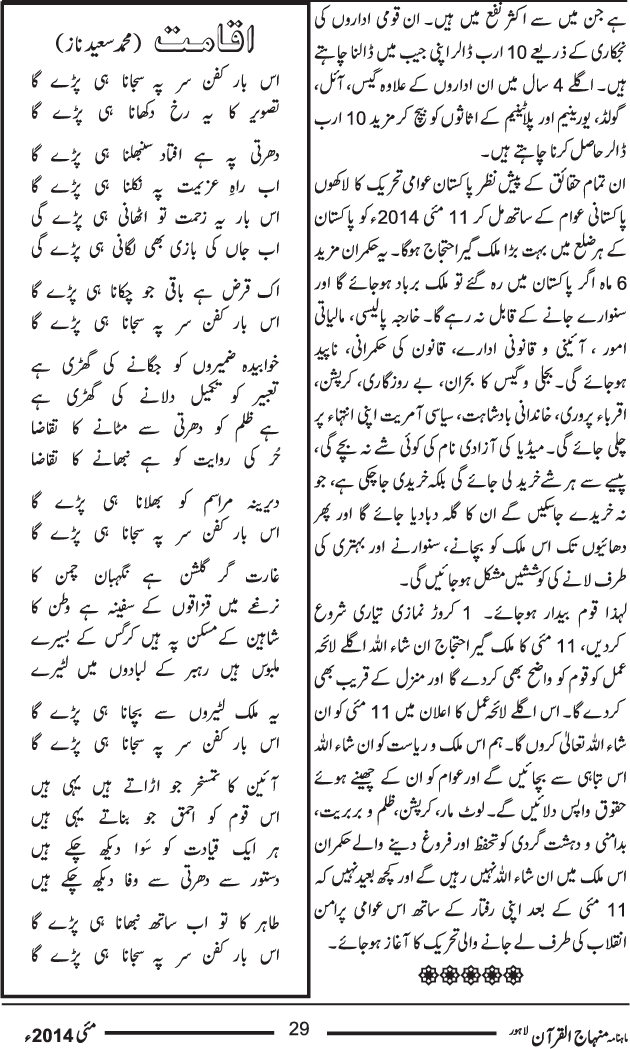 ہے جن میں سے اکثر نفع میں ہیں۔ ان قومی اداروں کی
نجکاری کے ذریعے 10 ارب ڈالر اپنی جیب میں ڈالنا چاہتے
ہیں۔ اگلے 4 سال میں ان اداروں کے علاوہ گیس، آئل،
گولڈ، یورینیم اور پلاٹینیم کے اثاثوں کو بیچ کر مزید 10 ارب
ڈالر حاصل کرنا چاہتے ہیں۔
ان تمام حقائق کے پیش نظر پاکستان عوامی تحریک کا لاکھوں
پاکستانی عوام کے ساتھ مل کر 11 مئی 2014ء کو پاکستان
کے ہر ضلع میں بہت بڑا ملک گیر احتجاج ہوگا۔ یہ حکمران مزید
6 ماہ اگر پاکستان میں رہ گئے تو ملک برباد ہوجائے گا اور
سنوارے جانے کے قابل نہ رہے گا۔ خارجہ پالیسی، مالیاتی
امور ، آئینی و قانونی ادارے، قانون کی حکمرانی، ناپید
ہوجائے گی۔ بجلی و گیس کا بحران، بے روزگاری، کرپشن،
اقرباء پروری، خاندانی بادشاہت، سیاسی آمریت اپنی انتہاء پر
چلی جائے گی۔ میڈیا کی آزادی نام کی کوئی شے نہ بچے گی،
پیسے سے ہر شے خرید لی جائے گی بلکہ خریدی جاچکی ہے، جو
نہ خریدے جاسکیں گے ان کا گلہ دبادیا جائے گا اور پھر
دھائیوں تک اس ملک کو بچانے، سنوارنے اور بہتری کی
طرف لانے کی کوششیں مشکل ہوجائیں گی۔
لہذا قوم بیدار ہوجائے۔ 1 کروڑ نمازی تیاری شروع
کردیں، 11 مئی کا ملک گیر احتجاج ان شاء اللہ اگلے لائحہ
عمل کو قوم کو واضح بھی کردے گا اور منزل کے قریب بھی
کردے گا۔ اس اگلے لائحہ عمل کا اعلان میں 11 مئی کو ان
شاء اللہ تعالیٰ کروں گا۔ ہم اس ملک و ریاست کو ان شاء اللہ
اس تباہی سے بچائیں گے اور عوام کو ان کے چھینے ہوئے
حقوق واپس دلائیں گے۔ لوٹ مار، کرپشن، ظلم و بربریت،
بدامنی و دہشت گردی کو تحفظ اور فروغ دینے والے حکمران
اس ملک میں ان شاء اللہ نہیں رہیں گے اور کچھ بعید نہیں کہ
11 مئی کے بعد اپنی رفتار کے ساتھ اس عوامی پرامن
انقلاب کی طرف لے جانے والی تحریک کا آغاز ہوجائے۔
اقامت (محمد سعید ناز)
اس بار کفن سر پہ سجانا ہی پڑے گا
تصویر کا یہ رخ دکھانا ہی پڑے گا
دھرتی پہ ہے افتاد سنبھلنا ہی پڑے گا
اب راہِ عزیمت پہ نکلنا ہی پڑے گا
اس بار یہ زحمت تو اٹھانی ہی پڑے گی
اب جاں کی بازی بھی لگانی ہی پڑے گی
اک قرض ہے باقی جو چکانا ہی پڑے گا
اس بار کفن سر پہ سجانا ہی پڑے گا
خوابیدہ ضمیروں کو جگانے کی گھڑی ہے
تعبیر کو تکمیل دلانے کی گھڑی ہے
ہے ظلم کو دھرتی سے مٹانے کا تقاضا
حُر کی روایت کو ہے نبھانے کا تقاضا
دیرینہ مراسم کو بھلانا ہی پڑے گا
اس بار کفن سر پہ سجانا ہی پڑے گا
غارت گر گلشن ہے نگہبان چمن کا
نرغے میں قزاقوں کے سفینہ ہے وطن کا
شاہین کے مسکن پہ ہیں کرگس کے بسیرے
ملبوس ہیں رہبر کے لبادوں میں لٹیرے
یہ ملک لٹیروں سے بچانا ہی پڑے گا
اس بار کفن سر پہ سجانا ہی پڑے گا
آئین کا تمسخر جو اڑاتے ہیں یہی ہیں
اس قوم کو احمق جو بناتے یہی ہیں
ہر ایک قیادت کو سَوا دیکھ چکے ہیں
دستور سے دھرتی سے وفا دیکھ چکے ہیں
طاہر کا تو اب ساتھ نبھانا ہی پڑے گا
اس بار کفن سر پہ سجانا ہی پڑے گا
ماہنامہ منہاج القرآن لاہور 29 مئی 2014ء